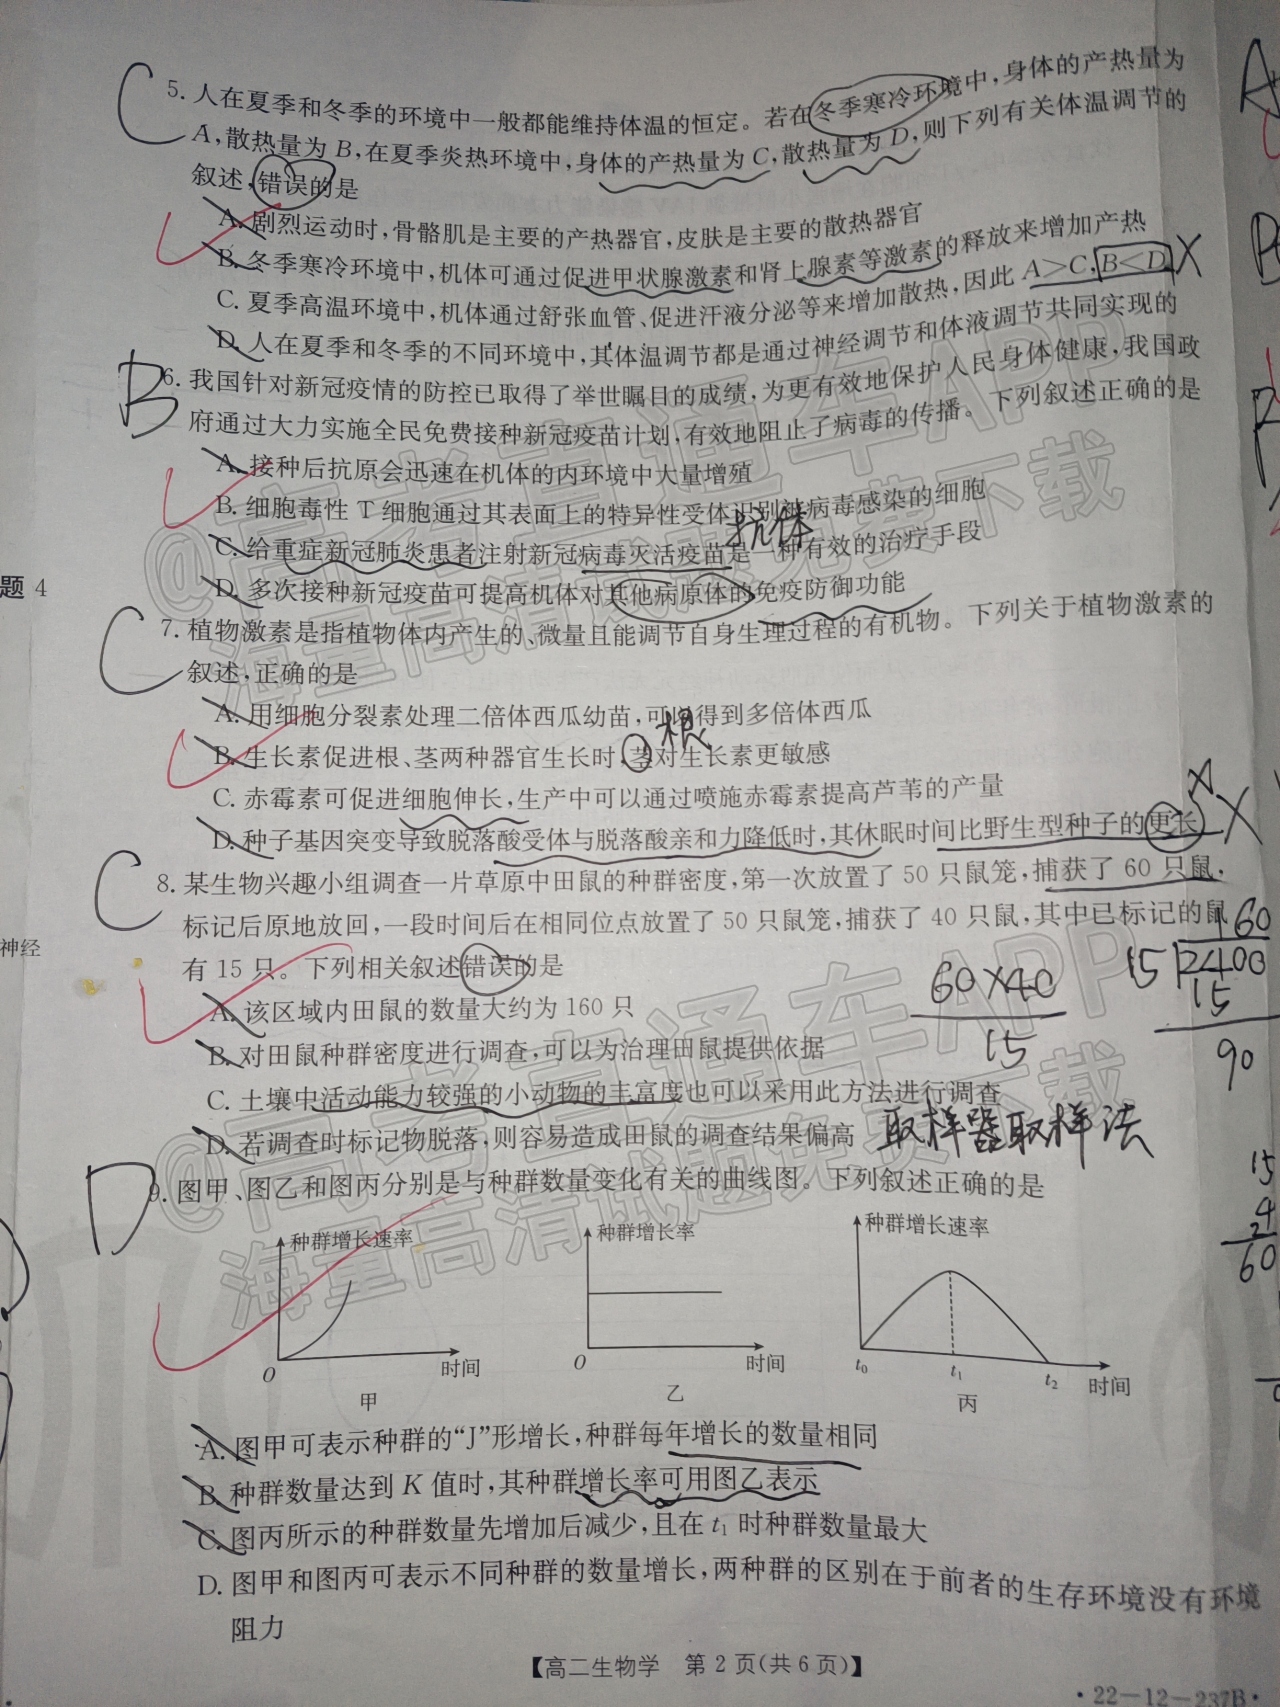 C
5. 人在夏季和冬季的环境中一般都能维持体温的恒定。若在冬季寒冷环境中,身体的产热量为
A,散热量为 B,在夏季炎热环境中,身体的产热量为 C,散热量为 D,则下列有关体温调节的
叙述,错误的是
A. 剧烈运动时,骨骼肌是主要的产热器官,皮肤是主要的散热器官
B. 冬季寒冷环境中,机体可通过促进甲状腺激素和肾上腺素等激素的释放来增加产热
C. 夏季高温环境中,机体通过舒张血管、促进汗液分泌等来增加散热,因此 A>C,B<D X
D. 人在夏季和冬季的不同环境中,其体温调节都是通过神经调节和体液调节共同实现的
B
6. 我国针对新冠疫情的防控已取得了举世瞩目的成绩,为更有效地保护人民身体健康,我国政
府通过大力实施全民免费接种新冠疫苗计划,有效地阻止了病毒的传播。下列叙述正确的是
A. 接种后抗原会迅速在机体的内环境中大量增殖
B. 细胞毒性 T 细胞通过其表面上的特异性受体识别被病毒感染的细胞
抗体
C. 给重症新冠肺炎患者注射新冠病毒灭活疫苗是一种有效的治疗手段
D. 多次接种新冠疫苗可提高机体对其他病原体的免疫防御功能
题 4
C
7. 植物激素是指植物体内产生的、微量且能调节自身生理过程的有机物。下列关于植物激素的
叙述,正确的是
A. 用细胞分裂素处理二倍体西瓜幼苗,可以得到多倍体西瓜
根
B. 生长素促进根、茎两种器官生长时,茎对生长素更敏感
C. 赤霉素可促进细胞伸长,生产中可以通过喷施赤霉素提高芦苇的产量
D. 种子基因突变导致脱落酸受体与脱落酸亲和力降低时,其休眠时间比野生型种子的更长 X
C
8. 某生物兴趣小组调查一片草原中田鼠的种群密度,第一次放置了 50 只鼠笼,捕获了 60 只鼠,
标记后原地放回,一段时间后在相同位点放置了 50 只鼠笼,捕获了 40 只鼠,其中已标记的鼠
神经
有 15 只。下列相关叙述错误的是
60×40
15
160
15 2400
15
90
A. 该区域内田鼠的数量大约为 160 只
B. 对田鼠种群密度进行调查,可以为治理田鼠提供依据
C. 土壤中活动能力较强的小动物的丰富度也可以采用此方法进行调查
D. 若调查时标记物脱落,则容易造成田鼠的调查结果偏高 取样器取样法
15
4
2
60
D
9. 图甲、图乙和图丙分别是与种群数量变化有关的曲线图。下列叙述正确的是
种群增长速率
O
时间
甲
种群增长率
O
时间
乙
种群增长速率
t₀
t₁
t₂
时间
丙
A. 图甲可表示种群的“J”形增长,种群每年增长的数量相同
B. 种群数量达到 K 值时,其种群增长率可用图乙表示
C. 图丙所示的种群数量先增加后减少,且在 t₁ 时种群数量最大
D. 图甲和图丙可表示不同种群的数量增长,两种群的区别在于前者的生存环境没有环境
阻力
【高二生物学 第 2 页(共 6 页)】
·22－12－237B·
@高考直通车APP
海量高清试题免费下载
@高考直通车APP
海量高清试题免费下载